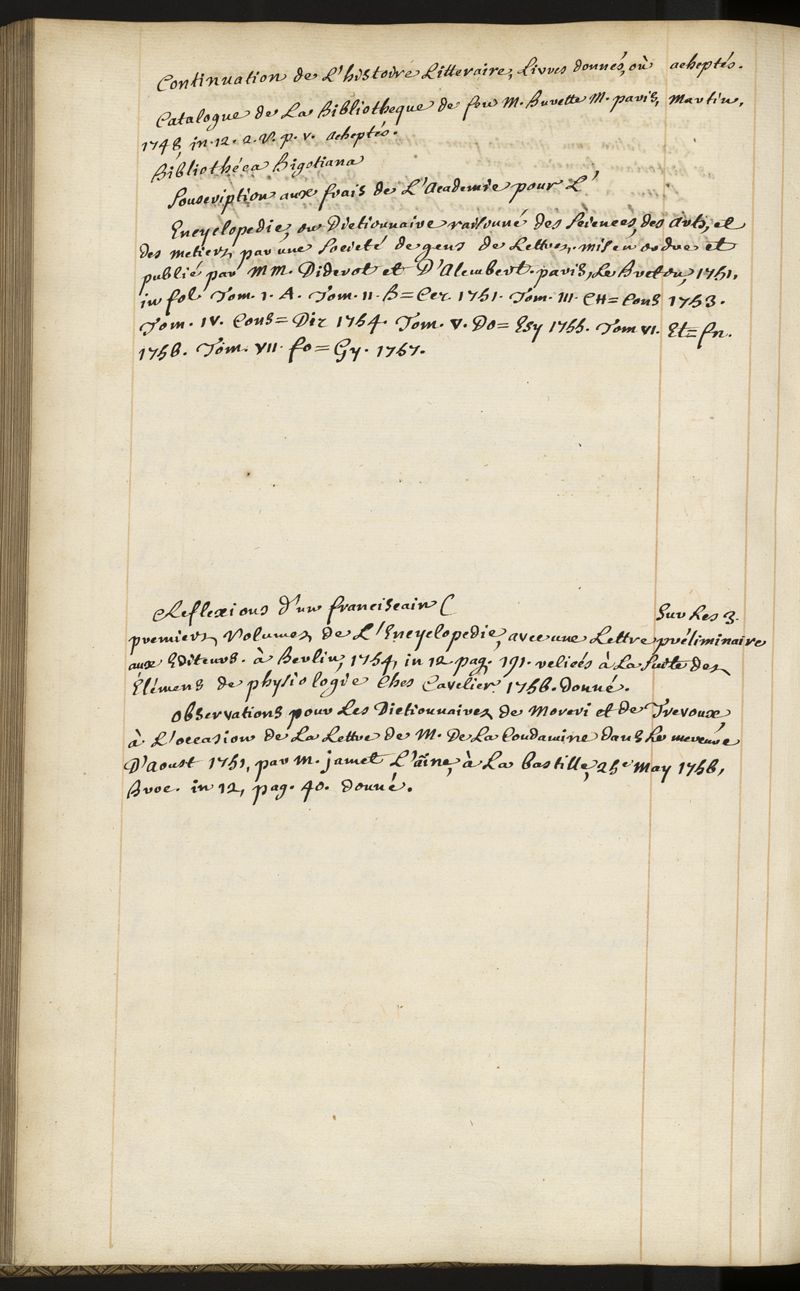 Continuation de L'histoire Litteraire, Livres donnés, où acheptés.
Catalogue de La Bibliotheque de feu M. Burette M. paris, Martin,
1748, in-12. 2. V. p. v. acheptés.
Bibliothéca Bigotiana
Souscription aux frais de L'Academie pour L'
Encyclopedie, ou Dictionnaire raisonné des Sciences, des Arts, et
des metiers, par une Societé de gens de Lettres, mis en ordre et
publié par MM. Diderot et D'Alembert. paris, Le Breton, 1751,
in fol. Tom. I. A. Tom. II. B=Cez. 1751. Tom. III. CH=Cons 1753.
Tom. IV. Cons=Diz 1754. Tom. V. Do=Esy 1755. Tom VI. Et=fn.
1756. Tom. VII. fo=Gy. 1757.
Reflexions d'un franciscain ( Sur Les 3.
premiers Volumes de L'Encyclopedie, avec une Lettre préliminaire
aux Editeurs. à Berlin, 1754, in 12 pag. 191. reliées à La Suite des
Elémens de physiologie Ches Cavelier. 1756. donné.
Observations pour Les Dictionnaires de Moreri et de Trevoux
à L'occasion de La Lettre de M. De La Condamine dans Le mercure
D'Aoust 1751, par M. jamet L'aîné, à La bastille, 25e May 1756,
Broc. in 12, pag. 40. donné.